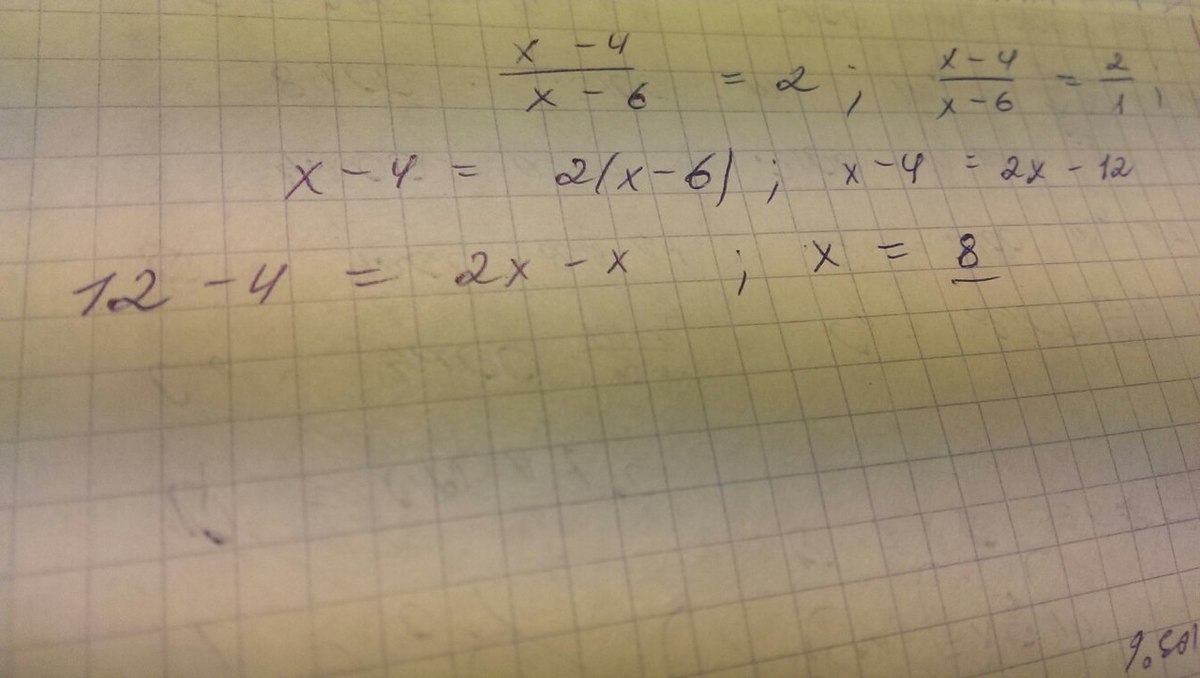 x - 4 / x - 6 = 2 ; x - 4 / x - 6 = 2 / 1 ;
x - 4 = 2(x - 6) ; x - 4 = 2x - 12
12 - 4 = 2x - x ; x = 8